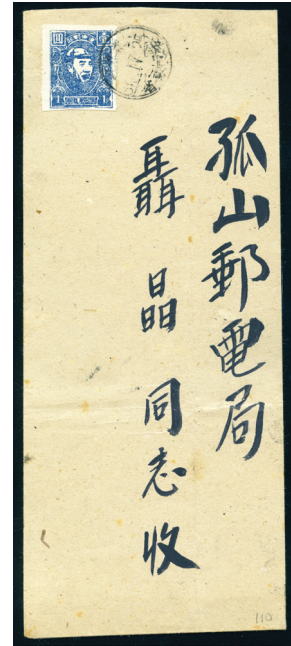 孤山郵電局
聶晶同志收
1
1
110